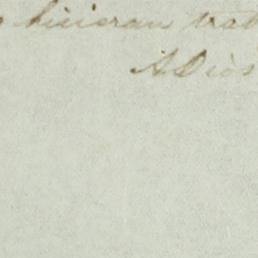 hicieran trat
A Dios